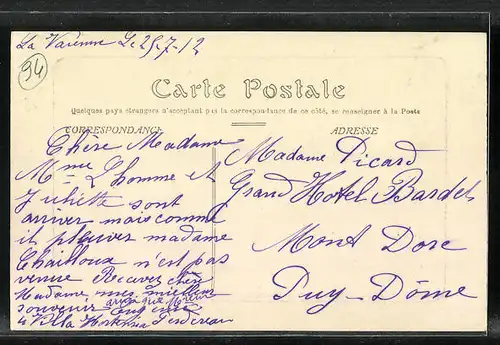 La Varenne Le 25-7-12
94
Carte Postale
Quelques pays étrangers n'acceptant pas la correspondance de ce côté, se renseigner à la Poste
CORRESPONDANCE
ADRESSE
Chère Madame
Mme Lhomme et
Juliette sont
arriver mais comme
il pleuver madame
Chailloux n'est pas
venue Recevez chère
Madame mes meilleur
souvenir ainsi que
4 Villa Hortensia
Madame Picard
Grand Hotel Bardet
Mont Dore
Puy-Dôme